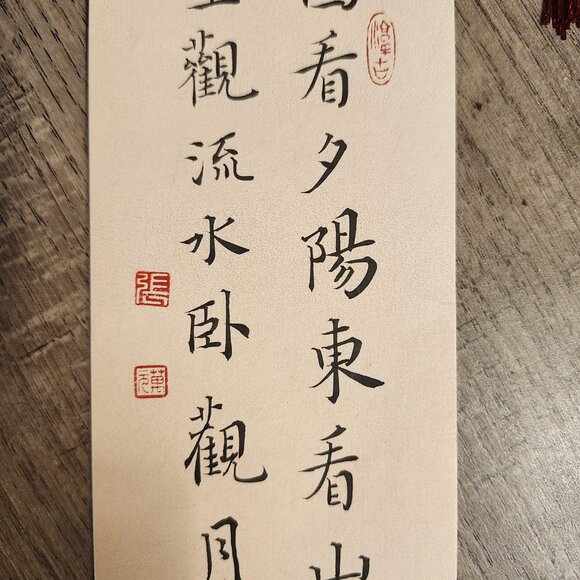 看夕陽東看
觀流水卧觀月
張